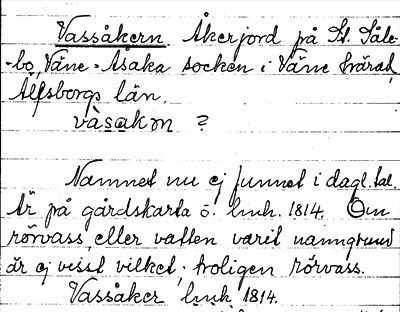 Vassåkern. Åkerjord på St. Såle-
-bo, Väne-Åsaka socken i Väne härad,
Älfsborgs län.
vàsakɷn ?
Namnet nu ej funnet i dagl. tal.
Är på gårdskarta o. lmh. 1814. Om
rörvass, eller vatten varit namngrund
är ej visst vilket, troligen rörvass.
Vassåker lmh 1814.